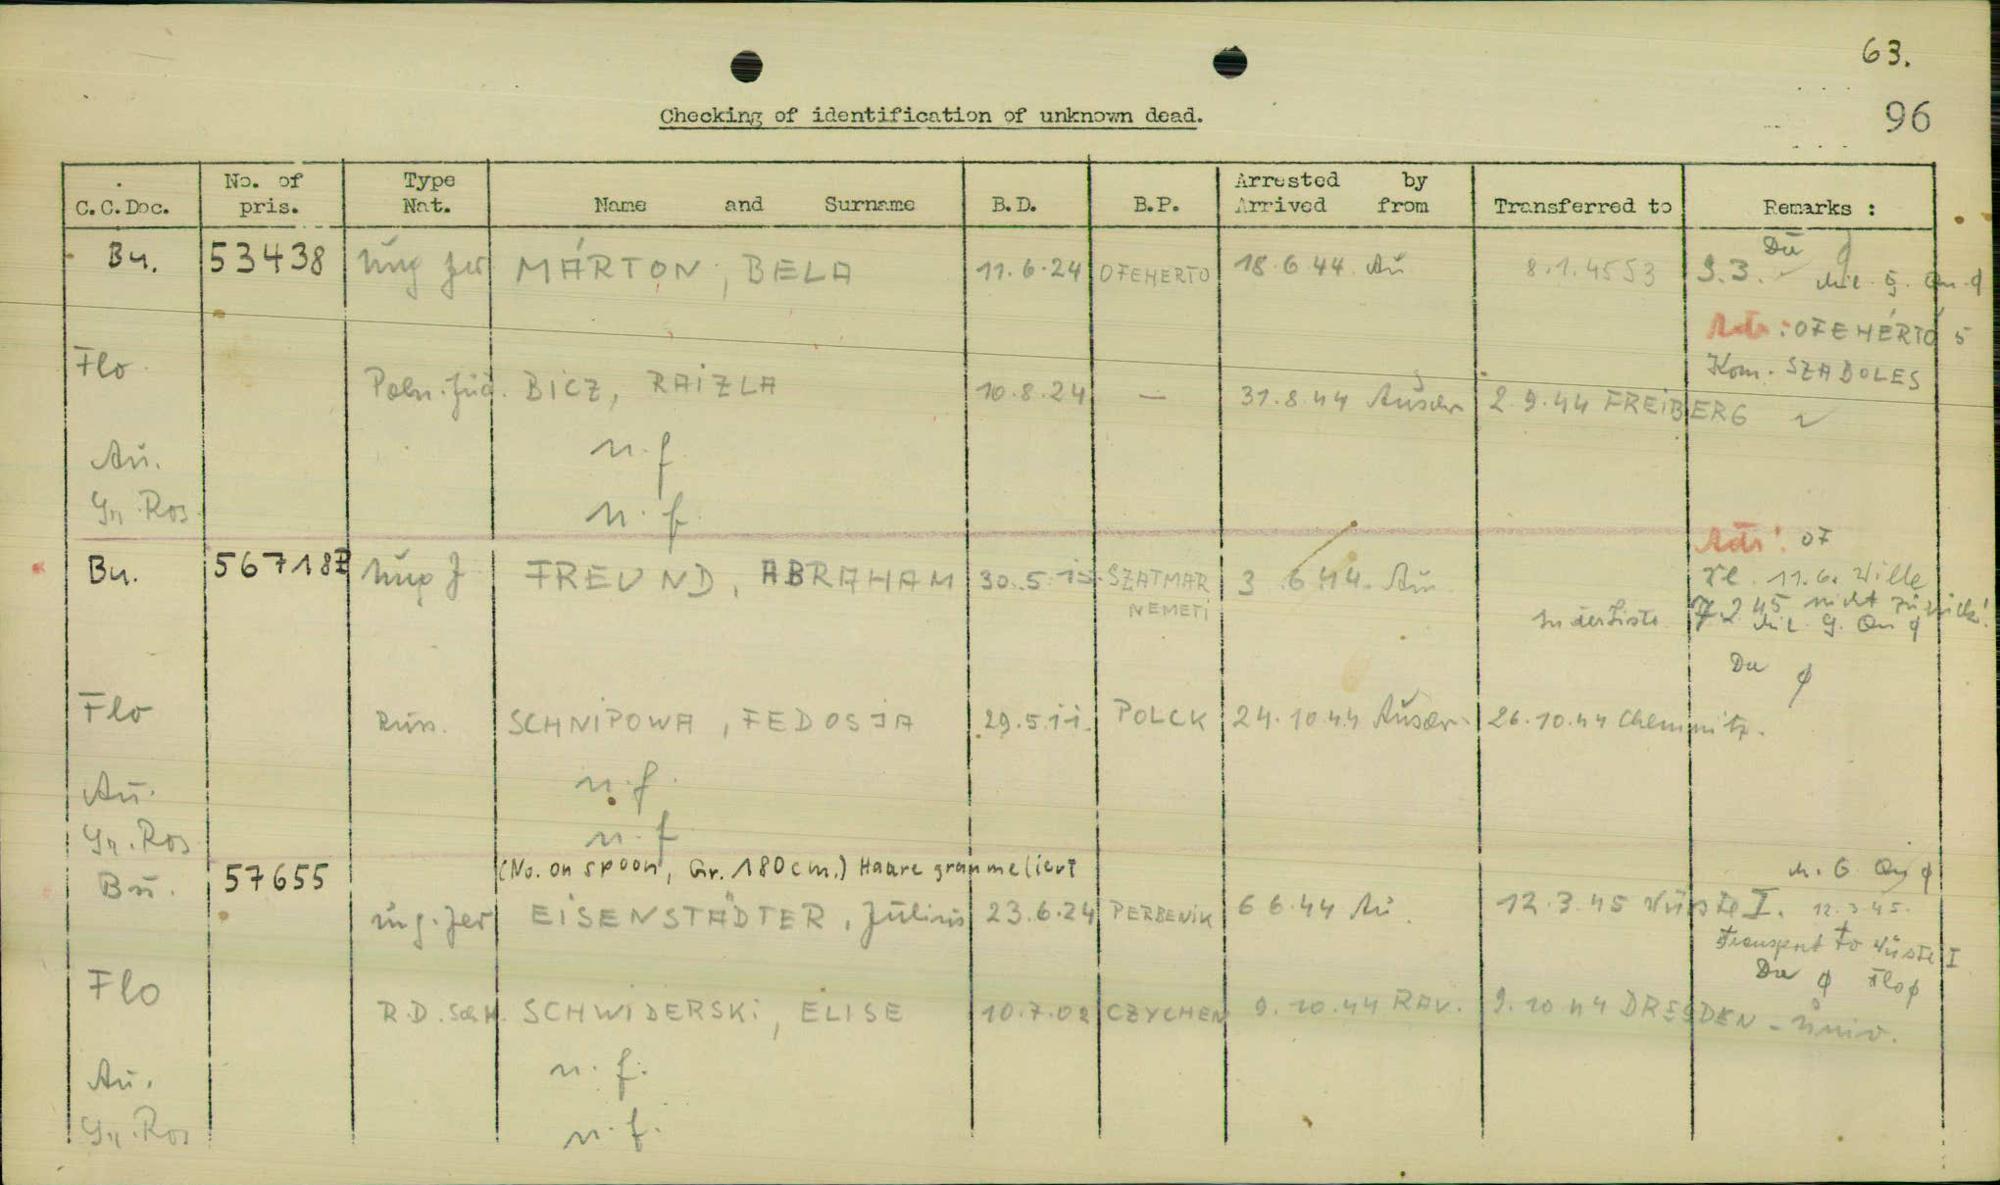 63.
96
Checking of identification of unknown dead.
C.C.Doc. No. of pris. Type Nat. Name and Surname B.D. B.P. Arrested by Arrived from Transferred to Remarks :
Bu. 53438 Ung Jer MÁRTON, BELA 11.6.24 OFEHERTO 18.6.44. Au 8.1.45 S3 9.3. Da
OFEHÉRTÓ 5
Kom. SZABOLES
Flo Poln. Jüd. BICZ, RAIZLA 10.8.24 — 31.8.44 Auschw 2.9.44 FREIBERG
Au. n.f
Gr. Ros n.f
Bu. 56718 Ung J FREUND, ABRAHAM 30.5.15. SZATMAR NEMETI 3.6.44. Au
11.6. Wille
In der Liste 7.2.45 nicht zurück!
Da φ
Flo Russ. SCHNIPOWA, FEDOSJA 29.5.11. POLCK 24.10.44 Auschw. 26.10.44 Chemnitz.
Au. n.f.
Gr. Ros n.f
(No. on spoon, Gr. 180 cm.) Haare grammeliert
Bu. 57655 ung. Jer EISENSTÄDTER, Julius 23.6.24 PERBENIK 6 6.44 Au. 12.3.45 Wüste I. 12.3.45.
Transport to Wüste I
Da φ Flo φ
Flo R.D. Sch. SCHWIDERSKI, ELISE 10.7.02 CZYCHEN 9.10.44 RAV. 9.10 44 DRESDEN - Univ.
Au. n.f.
Gr. Ros n.f.